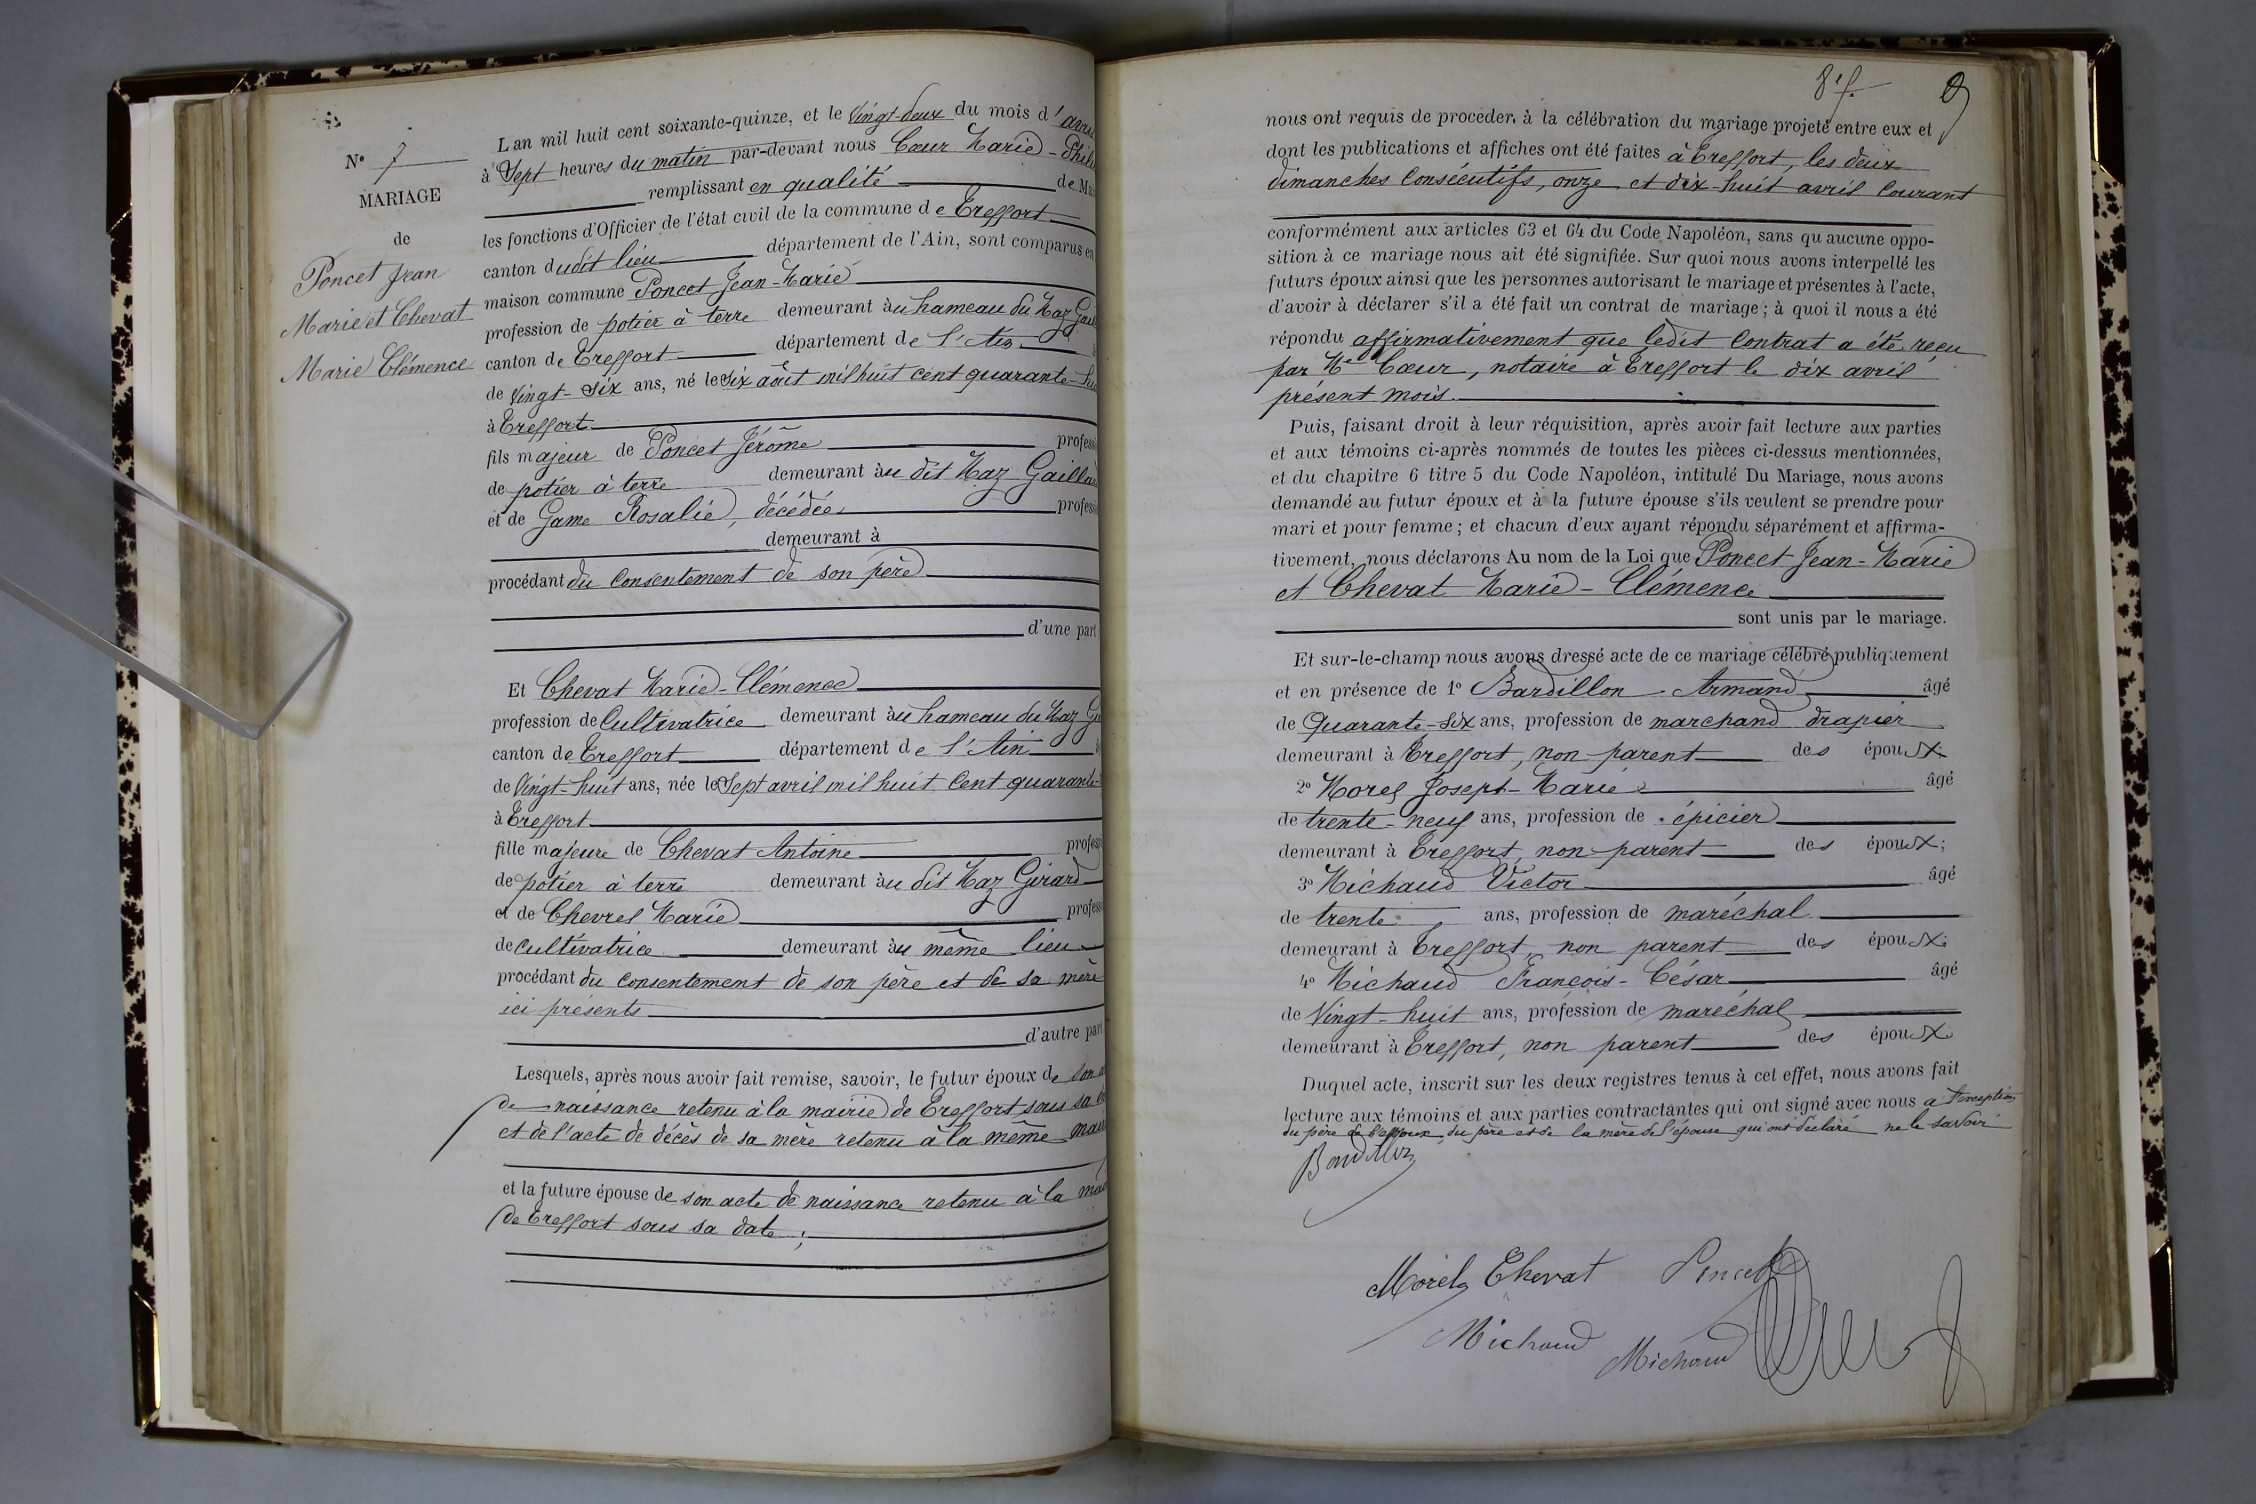 Nº 7
MARIAGE
de
Poncet Jean
Marie et Chevat
Marie Clémence
L'an mil huit cent soixante-quinze, et le Vingt-deux du mois d'avril
à Sept heures du matin par-devant nous Cœur Marie-
remplissant en qualité de
les fonctions d'Officier de l'état civil de la commune de Treffort
canton dudit lieu département de l'Ain, sont comparus en
maison commune Poncet Jean-Marie
profession de potier à terre demeurant au hameau du Maz
canton de Treffort département de l'Ain
de Vingt-six ans, né le Six août mil huit cent quarante-
à Treffort
fils majeur de Poncet Jérôme
de potier à terre demeurant au dit Maz Gaillard
et de Game Rosalie, décédée
demeurant à
procédant du consentement de son père
d'une part
Et Chevat Marie-Clémence
profession de Cultivatrice demeurant au hameau du Maz
canton de Treffort département de l'Ain
de Vingt-huit ans, née le Sept avril mil huit cent quarante-
à Treffort
fille majeure de Chevat Antoine
de potier à terre demeurant au dit Maz Girard
et de Chevrel Marie
de cultivatrice demeurant au même lieu
procédant du consentement de son père et de sa mère
ici présents
d'autre part
Lesquels, après nous avoir fait remise, savoir, le futur époux de son
de naissance retenu à la mairie de Treffort sous sa
et de l'acte de décès de sa mère retenu à la même
et la future épouse de son acte de naissance retenu à la
de Treffort sous sa date;
nous ont requis de procéder à la célébration du mariage projeté entre eux et
dont les publications et affiches ont été faites à Treffort, les deux
dimanches consécutifs, onze et dix-huit avril courant
conformément aux articles 63 et 64 du Code Napoléon, sans qu'aucune oppo-
sition à ce mariage nous ait été signifiée. Sur quoi nous avons interpellé les
futurs époux ainsi que les personnes autorisant le mariage et présentes à l'acte,
d'avoir à déclarer s'il a été fait un contrat de mariage; à quoi il nous a été
répondu affirmativement que ledit contrat a été reçu
par Me Cœur, notaire à Treffort le dix avril
présent mois.
Puis, faisant droit à leur réquisition, après avoir fait lecture aux parties
et aux témoins ci-après nommés de toutes les pièces ci-dessus mentionnées,
et du chapitre 6 titre 5 du Code Napoléon, intitulé Du Mariage, nous avons
demandé au futur époux et à la future épouse s'ils veulent se prendre pour
mari et pour femme; et chacun d'eux ayant répondu séparément et affirma-
tivement, nous déclarons Au nom de la Loi que Poncet Jean-Marie
et Chevat Marie-Clémence
sont unis par le mariage.
Et sur-le-champ nous avons dressé acte de ce mariage célébré publiquement
et en présence de 1º Bardillon Armand âgé
de Quarante-six ans, profession de marchand drapier
demeurant à Treffort, non parent des époux;
2º Morel Joseph-Marie âgé
de trente-neuf ans, profession de épicier
demeurant à Treffort, non parent des époux;
3º Michaud Victor âgé
de trente ans, profession de maréchal
demeurant à Treffort, non parent des époux;
4º Michaud François-César âgé
de Vingt-huit ans, profession de maréchal
demeurant à Treffort, non parent des époux
Duquel acte, inscrit sur les deux registres tenus à cet effet, nous avons fait
lecture aux témoins et aux parties contractantes qui ont signé avec nous a l'exception
du père de l'époux, du père et de la mère de l'épouse qui ont déclaré ne le savoir
Bardillon
Morel Chevat Poncet
Michaud Michaud